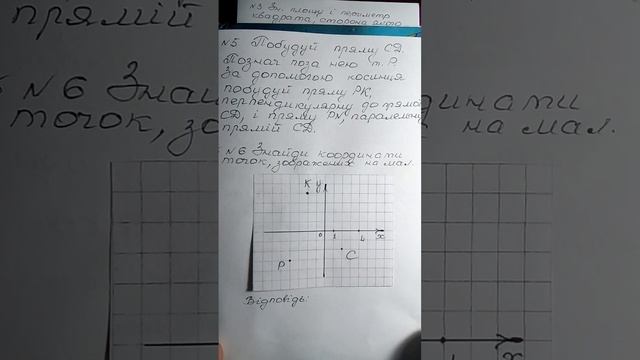 №3 Зн. площу і периметр
квадрата, сторона якого
№5 Побудуй пряму CD.
Познач поза нею т. P.
За допомогою косинця
побудуй пряму PK,
перпендикулярну до прямої
CD, і пряму PN, паралельну
прямій CD.
№6 Знайди координати
точок, зображених на мал.
K y
0 1 4 x
P C
Відповідь: